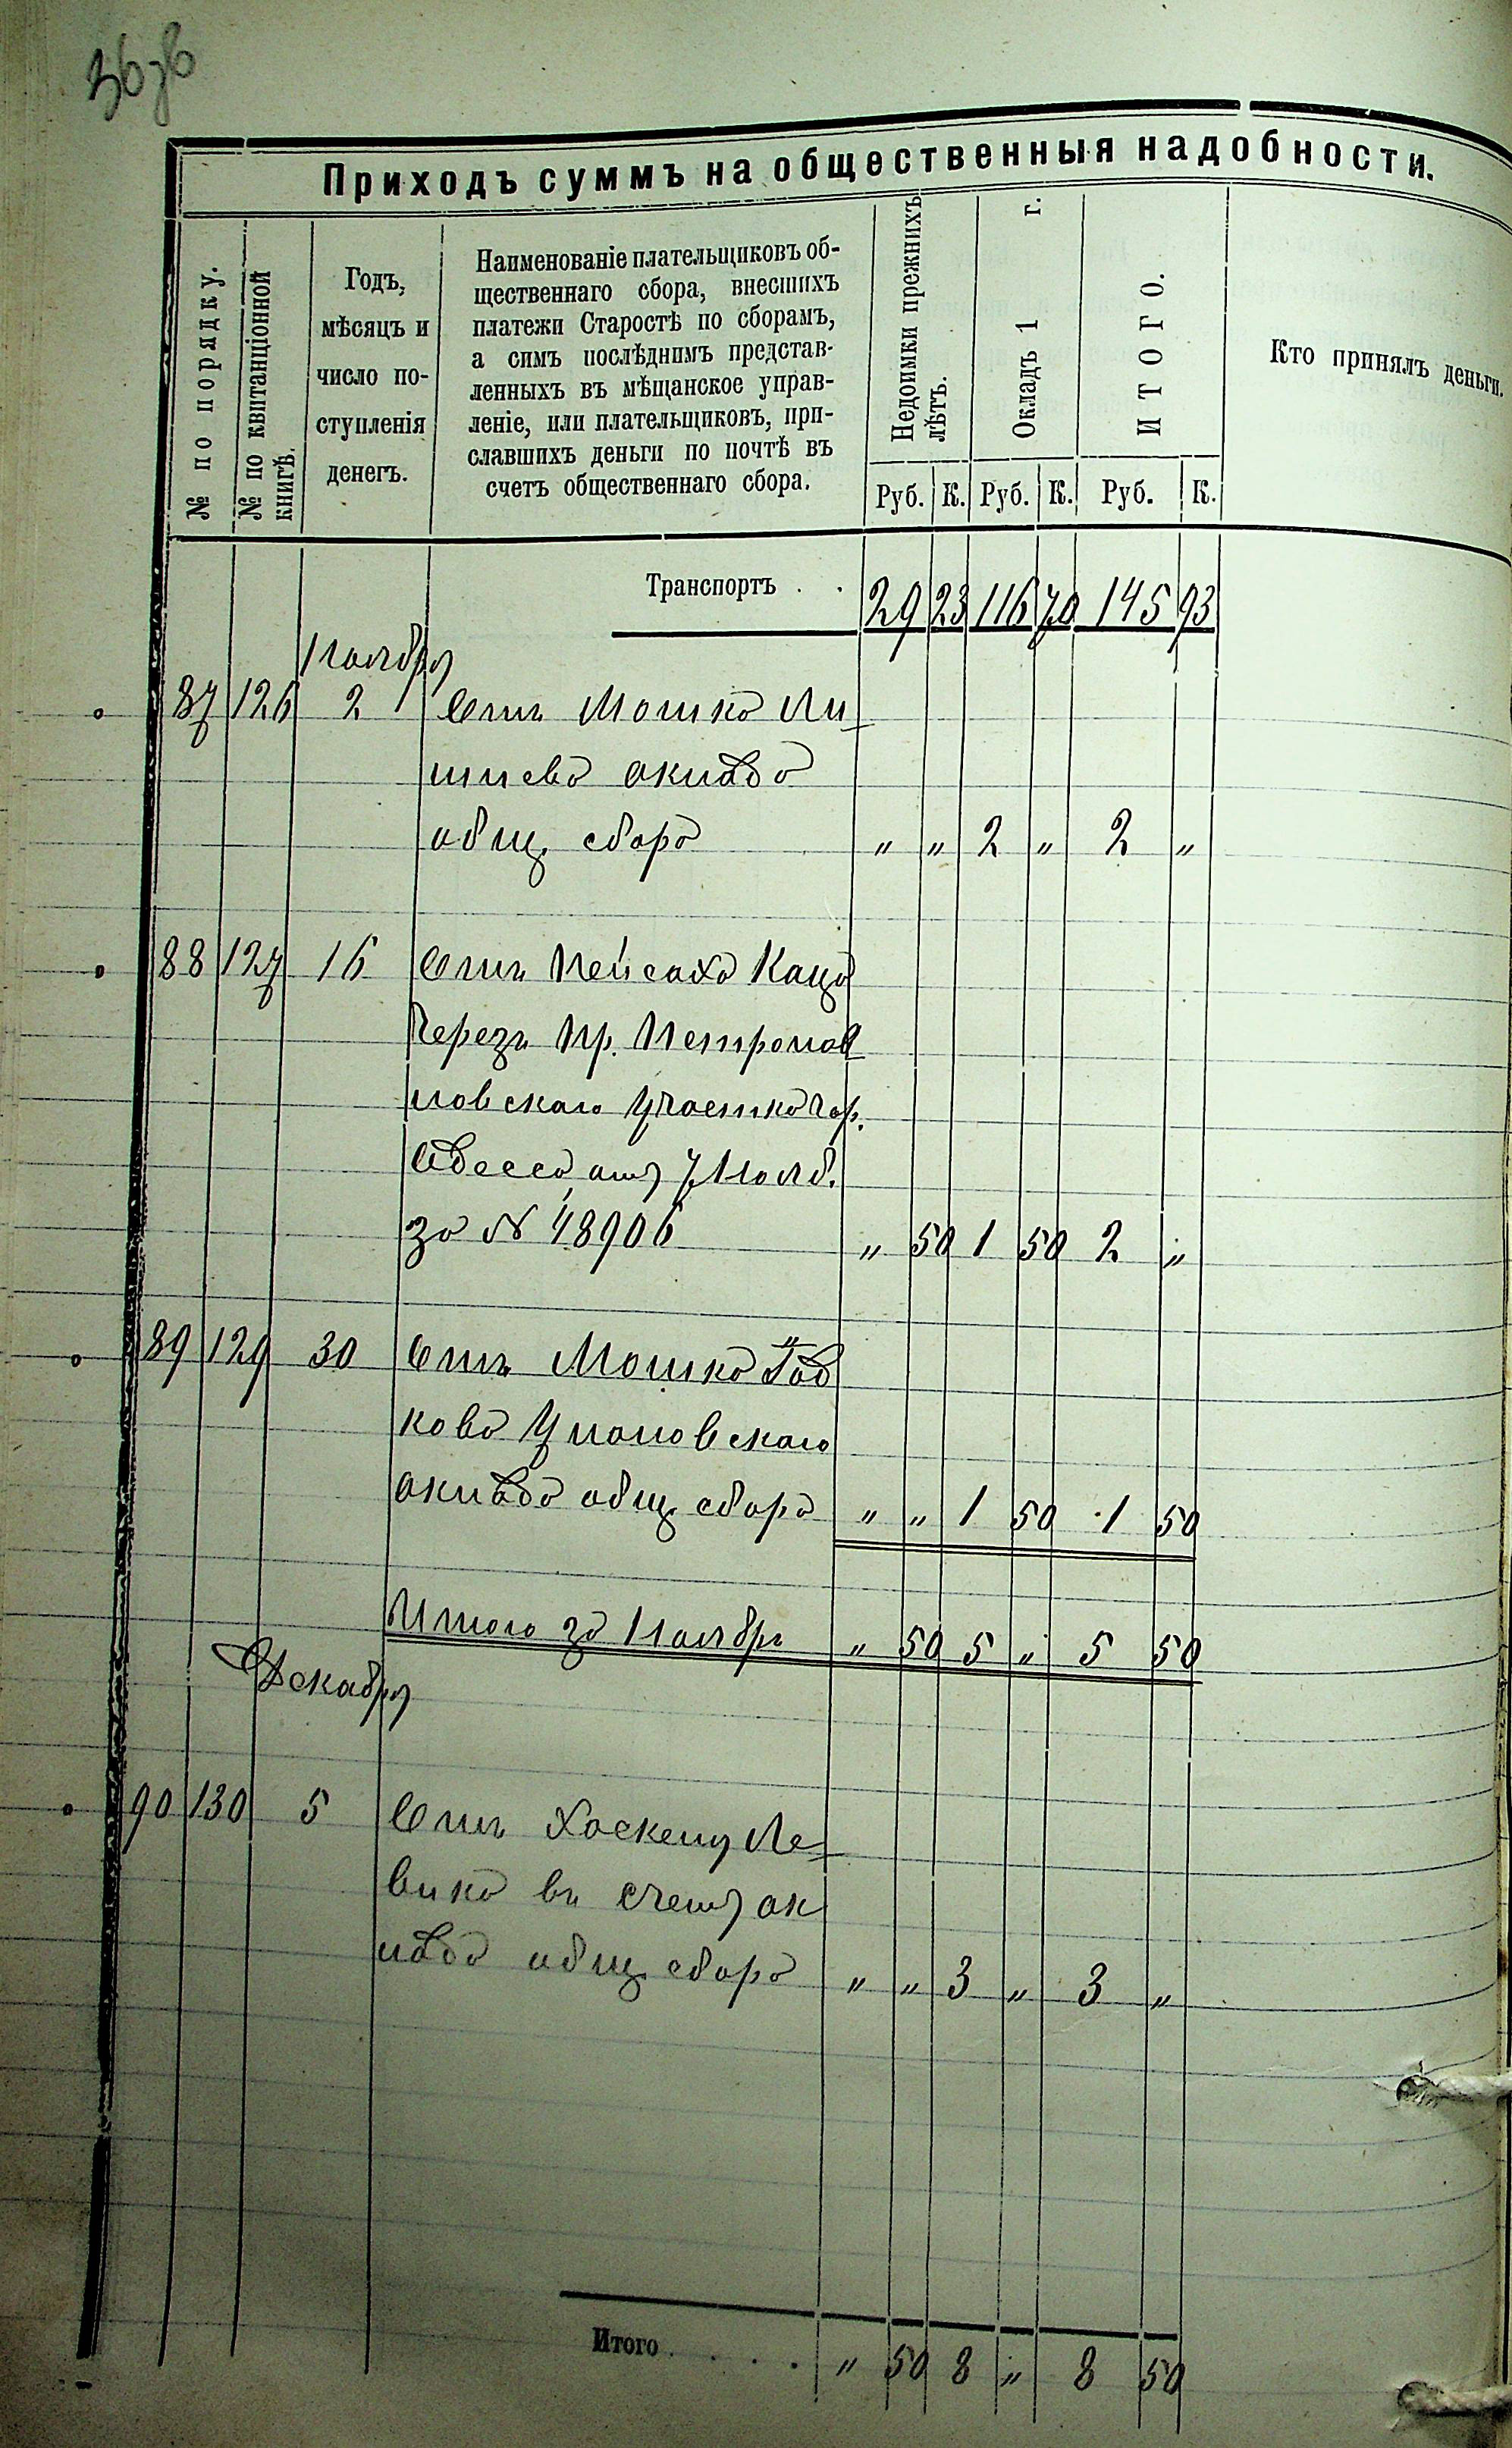 Приходъ суммъ на общественныя надобности.
№ по порядку.
№ по квитанціонной книгѣ.
Годъ,
мѣсяцъ и
число по-
ступленія
денегъ.
Наименованіе плательщиковъ об-
щественнаго сбора, внесшихъ
платежи Старостѣ по сборамъ,
а симъ послѣднимъ представ-
ленныхъ въ мѣщанское управ-
леніе, или плательщиковъ, при-
славшихъ деньги по почтѣ въ
счетъ общественнаго сбора.
Недоимки прежнихъ лѣтъ.
Окладъ 1 г.
ИТОГО.
Кто принялъ деньги.
Руб. К. Руб. К. Руб. К.
Транспортъ . . 29 23 116 70 145 93
Ноября
87 126 2 Отъ Мошка Ли
шнева оклада
общ. сбора " " 2 " 2 "
88 127 16 Отъ Пейсаха Каца
Черезъ Пр. Петропав
ловскаго Участка гор.
Одесса, отъ 7 Нояб.
за № 48906 " 50 1 50 2 "
89 129 30 Отъ Мошка
кова Улановскаго
оклада общ. сбора " " 1 50 1 50
Итого за Ноябрь " 50 5 " 5 50
Декабря
90 130 5 Отъ Хаскеля Ле
вика въ счетъ ок
лада общ. сбора " " 3 " 3 "
Итого . . . . " 50 8 " 8 50